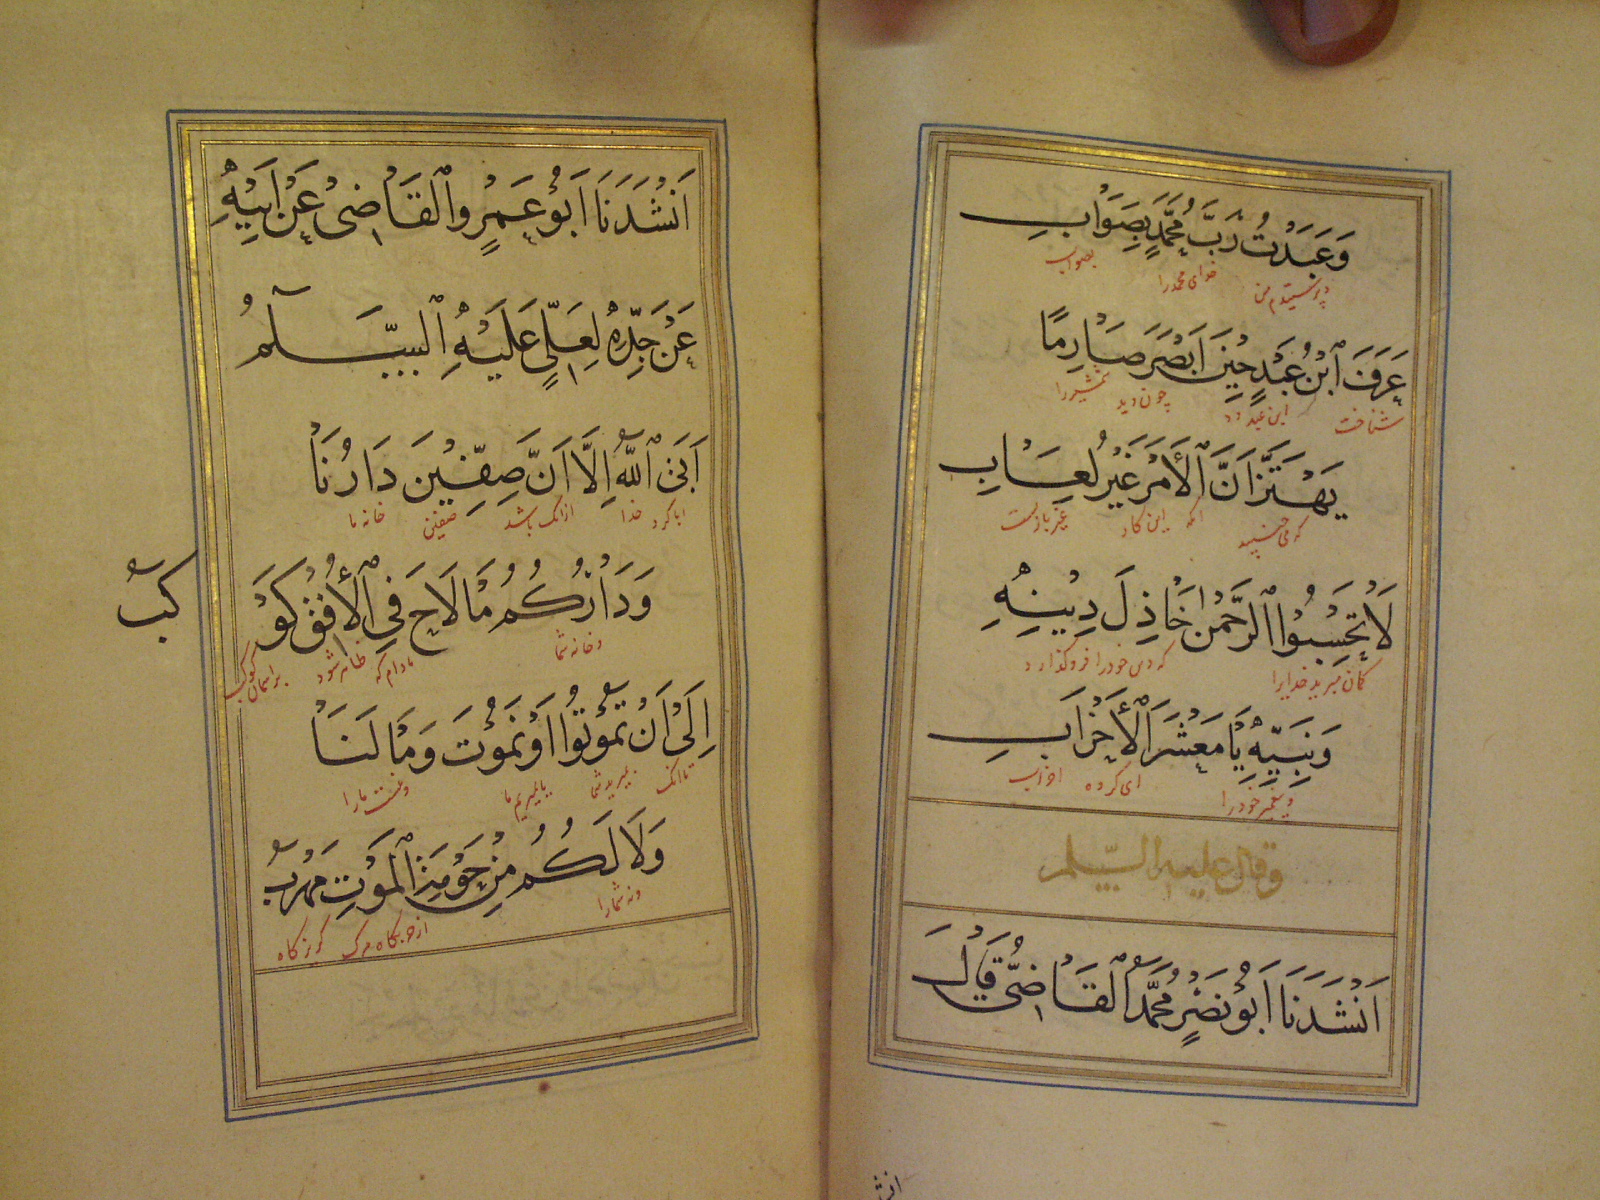 وَعَبَدْتُ رَبَّ مُحَمَّدٍ بِصَوَابِ
وپرستیدم من خدای محمد را بصواب
عَرَفَ ٱبْنُ عَبْدٍ حِيْنَ اَبْصَرَ صَارِمًا
شناخت ابن عبد ود چون دید شمشیر را
يَهْتَزُّ اَنَّ ٱلْأَمْرَ غَيْرُ لِعَابِ
که می جنبید که این کار غیر بازیست
لَا تَحْسِبُوا ٱلرَّحْمٰنَ خَاذِلَ دِيْنِهِ
کمان مبرید خدایرا که دین خود را فرو کذارد
وَنَبِيِّهِ يَا مَعْشَرَ ٱلْأَحْزَابِ
و پیغمبر خود را ای کروه احزاب
وقال عليه السّلم
اَنْشَدَنَا اَبُوْ نَصْرٍ مُحَمَّدُ ٱلْقَاضِىُّ قَالَ
انش
اَنْشَدَنَا اَبُوْ عَمْرٍو ٱلْقَاضِىْ عَنْ اَبِيْهِ
عَنْ جَدِّهِ لِعَلِىٍّ عَلَيْهِ ٱلسَّلٰمُ
اَبَى ٱللّٰهُ اِلَّا اَنَّ صِفِّيْنَ دَارُنَا
ابا کرد خدا از انک باشد صفین خانه ما
وَدَارُكُمُ مَا لَاحَ فِي ٱلْأُفُقِ كَوْ
كبُ
و خانه شما مادام که ظاهر شود بر اسمان کوکب
اِلَىْ اَنْ تَمُوْتُوا اَوْ نَمُوْتَ وَمَا لَنَا
تا انک بمیرید شما یا بمیریم ما و نیست ما را
وَلَا لَكُمُ مِنْ حَوْمَةِ ٱلْمَوْتِ مَهْرَبُ
و نه شما را از حربکاه مرک کریزکاه